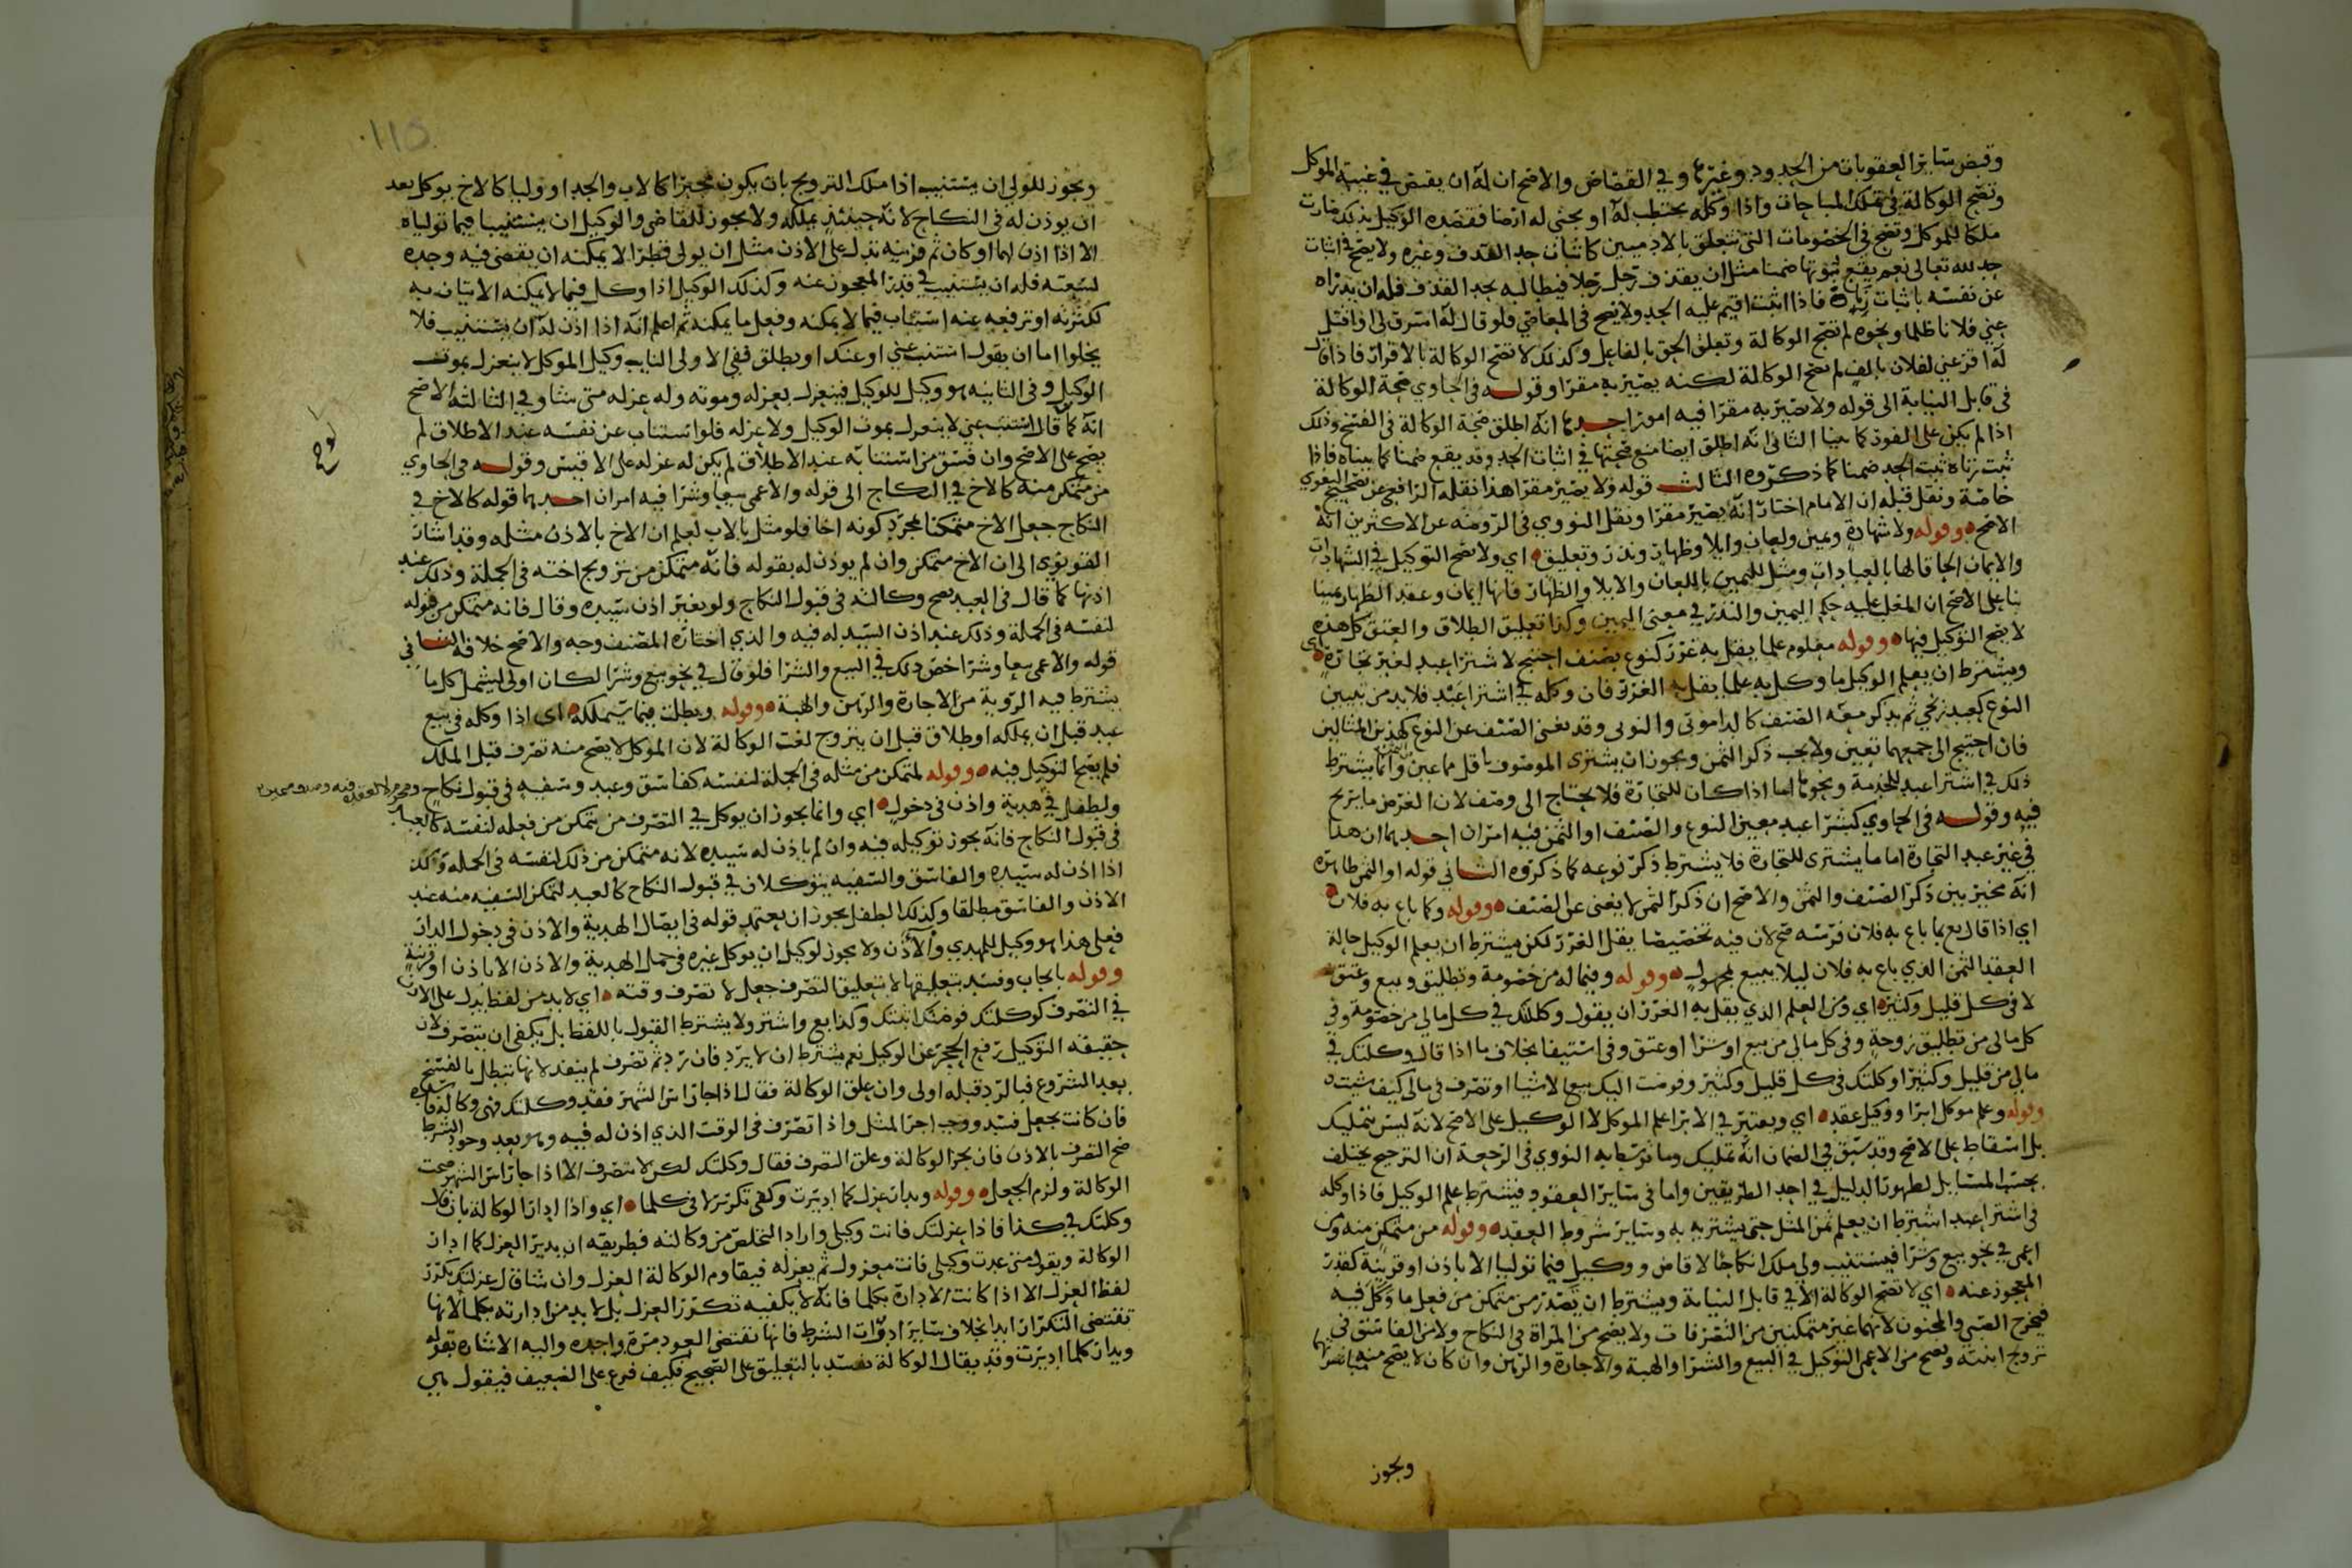 وقبض سائر العقوبات من الحدود وغيرها وفي القصاص والاصح ان له ان يقبض في غيبة الموكل
وتصح الوكالة في تملك المباحات واذا وكله يحتطب له او يحتش له ارضا فقصده الوكيل بذلك صارت
ملكا للموكل وتصح في الخصومات التي تتعلق بالادميين كاثبات حد القذف وغيره ولا يصح في اثبات
حد لله تعالى نعم يقع ثبوتها ضمنا مثل ان يقذف رجل رجلا فيطالبه بحد القذف فله ان يدراه
عن نفسه باثبات زناه فاذا اثبت اقيم عليه الحد ولا يصح في المعاصي فلو قال له اسرق لي او اقتل
عني فلانا ظلما ونحوه لم تصح الوكالة وتعلق الحق بالفاعل وكذلك لا تصح الوكالة بالاقرار فاذا قال
له اقر عني لفلان بالف لم تصح الوكالة لكنه يصير به مقرا وقوله في الحاوي صحة الوكالة
في قابل النيابة الى قوله ولا يصير به مقرا فيه امور احدها انه اطلق صحة الوكالة في الفسخ وذلك
اذا لم يكن على الفور كما بينا الثاني انه اطلق ايضا منع صحتها في اثبات الحد وقد يقع ضمنا كما بيناه فاذا
ثبت زناه ثبت الحد ضمنا كما ذكروه الثالث قوله ولا يصير مقرا هذا نقله الرافعي عن تصحيح البغوي
خاصة ونقل قبله ان الامام اختار انه يصير مقرا ونقل النووي في الروضة عن الاكثرين انه
الاصح وقوله ولا شهادة ويمين ولعان وايلا وظهار ونذر وتعليق اي ولا يصح التوكيل في الشهادات
والايمان الحاقا لها بالعبادات ومثل لليمين باللعان والايلا والظهار فانها ايمان وعقد الظهار يمينا
بنا على الاصح ان المغلب عليه حكم اليمين والنذر في معنى اليمين وكذا تعليق الطلاق والعتق كل هذه
لا يصح التوكيل فيها وقوله معلوم علما يقل به غرر كنوع بصنف احتيج لا شترا عبد لغير تجارة اي
ويشترط ان يعلم الوكيل ما وكل به علما يقل به الغرر فان وكله في اشترا عبد فلا بد من تعيين
النوع كعبد زنجي ثم يذكر معه الصنف كالداموتي والنوبي وقد يغني الصنف عن النوع كهذين المثالين
فان احتيج الى جمعهما تعين ولا يجب ذكر الثمن ويجوز ان يشتري الموصوف باقل مما عين وانما يشترط
ذلك في اشترا عبد للخدمة ونحوها اما اذا كان للتجارة فلا يحتاج الى وصف لان الغرض ما يربح
فيه وقوله في الحاوي كشرا عبد معين النوع والصنف او الثمن فيه امران احدهما ان هذا
في غير عبد التجارة اما ما يشترى للتجارة فلا يشترط ذكر نوعه كما ذكروه الثاني قوله او الثمن ظاهره
انه مخير بين ذكر الصنف والثمن والاصح ان ذكر الثمن لا يغني عن الصنف وقوله وكما باع به فلان
اي اذا قال بع بما باع به فلان فرسه صح لان فيه تخصيصا يقل الغرر لكن يشترط ان يعلم الوكيل حالة
العقد الثمن الذي باع به فلان ليلا يبيع بمجهول وقوله وفيما له من خصومة وتطليق وبيع وعتق
لا في كل قليل وكثير اي ومن العلم الذي يقل به الغرر ان يقول وكلتك في كل مالي من خصومة وفي
كل مالي من تطليق زوجة وفي كل مالي من بيع او شرا او عتق وفي استيفا بخلاف ما اذا قال وكلتك في
مالي من قليل وكثير او كلتك في كل قليل وكثير وفوضت اليك بيع الاشيا او تصرف في مالي كيف شيت
وقوله وعلم موكل ابرا ووكيل عقد اي ويعتبر في الابرا علم الموكل لا الوكيل على الاصح لانه ليس بتمليك
بل اسقاط على الاصح وقد سبق في الضمان انه تمليك وما نوسطا به النووي في الرجعة ان الترجيح يختلف
بحسب المسايل لظهور الدليل في احد الطريقين واما في سائر العقود فيشترط علم الوكيل فاذا وكله
في اشترا عبد اشترط ان يعلم ثمن المثل حتى يشتريه به وسائر شروط العقد وقوله من متمكن منه ومن
اعمى في نحو بيع وشرا فيستنيب ولي ملك انكاحا لا قاض ووكيل فيما توليا الا باذن او قرينة كقدر
المعجوز عنه اي لا تصح الوكالة الا في قابل النيابة ويشترط ان تصدر من متمكن من فعل ما وكل فيه
فيخرج الصبي والمجنون لانهما غير متمكنين من التصرفات ولا يصح من المراة في النكاح ولا من الفاسق في
تزويج ابنته ويصح من الاعمى التوكيل في البيع والشرا والهبة والاجارة والرهن وان كان لا يصح منه مباشرتها
ويجوز
115
ويجوز للولي ان يستنيب اذا ملك التزويج بان يكون مجبرا كالاب والجد او وليا كالاخ يوكل بعد
ان يوذن له في النكاح لانه حينئذ يملكه ولا يجوز للقاضي والوكيل ان يستنيبا فيما تولياه
الا اذا اذن لهما او كان ثم قرينة تدل على الاذن مثل ان يولى قطرا لا يمكنه ان يقضي فيه وحده
لسعته فله ان يستنيب في قدر المعجوز عنه وكذلك الوكيل اذا وكل فيما لا يمكنه الاتيان به
لكثرته او ترفعه عنه استناب فيما لا يمكنه وفعل ما يمكنه ثم اعلم انه اذا اذن له ان يستنيب فلا
يخلوا اما ان يقول استنب عني او عنك او يطلق ففي الاولى النايب وكيل الموكل لا ينعزل بموت
الوكيل وفي الثانية هو وكيل للوكيل فينعزل بعزله وموته وله عزله متى شا وفي الثالثة الاصح
انه كما قال استنب عني لا ينعزل بموت الوكيل ولا عزله فلو استناب عن نفسه عند الاطلاق لم
يصح على الاصح وان فسق من استنابه عند الاطلاق لم يكن له عزله على الاقيس وقوله في الحاوي
من متمكن منه كالاخ في النكاح الى قوله والاعمى بيعا وشرا فيه امران احدهما قوله كالاخ في
النكاح جعل الاخ متمكنا بمجرد كونه اخا فلو مثل بالاب لعلم ان الاخ بالاذن مثله وقد اشار
القونوي الى ان الاخ متمكن وان لم يوذن له بقوله فانه متمكن من تزويج اخته في الجملة وذلك عند
اذنها كما قال في العبد يصح وكالته في قبول النكاح ولو بغير اذن سيده وقال فانه متمكن من قبوله
لنفسه في الجملة وذلك عند اذن السيد له فيه والذي اختاره المصنف وجه والاصح خلافه الثاني
قوله والاعمى بيعا وشرا خص ذلك في البيع والشرا فلو قال في نحو بيع وشرا لكان اولى ليشمل كل ما
يشترط فيه الروية من الاجارة والرهن والهبة وقوله وبطلت فيما سيملكه اي اذا وكله في بيع
عبد قبل ان يملكه او طلاق قبل ان يتزوج لغت الوكالة لان الموكل لا يصح منه تصرف قبل الملك
فلم يصح التوكيل فيه وقوله لمتمكن من مثله في الجملة لنفسه كفاسق وعبد وسفيه في قبول نكاح
ولطفل في هدية واذن في دخول اي وانما يجوز ان يوكل في التصرف من يتمكن من فعله لنفسه كالعبد
في قبول النكاح فانه يجوز توكيله فيه وان لم ياذن له سيده لانه متمكن من ذلك لنفسه في الجملة وذلك
اذا اذن له سيده والفاسق والسفيه يتوكلان في قبول النكاح كالعبد لتمكن السفيه منه عند
الاذن والفاسق مطلقا وكذلك الطفل يجوز ان يعتمد قوله في ايصال الهدية والاذن في دخول الدار
فعلى هذا هو وكيل للمهدي والآذن ولا يجوز لوكيل ان يوكل غيره في حمل الهدية والاذن الا باذن او قرينة
وقوله بايجاب وفسد بتعليقها لا بتعليق التصرف جعل لا تصرف وقته اي لا بد من لفظ يدل على الاذن
في التصرف كوكلتك فوضتك انبتك وكذا بع واشتر ولا يشترط القبول باللفظ بل يكفي ان يتصرف لان
حقيقة التوكيل رفع الحجر عن الوكيل نعم يشترط ان لا يرد فان رد ثم تصرف لم ينفذ لانها تبطل بالفسخ
بعد الشروع فبالرد قبله اولى وان علق الوكالة فقال اذا جا راس الشهر فقد وكلتك فهي وكالة فاسدة
فان كانت بجعل فسد ووجب اجر المثل واذا تصرف في الوقت الذي اذن له فيه وهو بعد وجود الشرط
صح التصرف بالاذن فان نجز الوكالة وعلق التصرف فقال وكلتك لكن لا تتصرف الا اذا جا راس الشهر صحت
الوكالة ولزم الجعل وقوله ويدار عزل كما اديرت وكفى تكرر لا في كلما اي واذا ادار الوكالة بان قال
وكلتك في كذا فاذا عزلتك فانت وكيلي واراد التخلص من وكالته فطريقه ان يدير العزل كما ادار
الوكالة ويقول متى عدت وكيلي فانت معزول ثم يعزله فيقاوم الوكالة العزل وان شا قال عزلتك يكرر
لفظ العزل الا اذا كانت الادارة بكلما فانه لا يكفيه تكرر العزل بل لا بد من ادارته بكلما لانها
تقتضي التكرار ابدا بخلاف سائر ادوات الشرط فانها تقتضي العود مرة واحدة واليه الاشارة بقوله
ويدار كلما اديرت وقد يقال الوكالة تفسد بالتعليق على الصحيح فكيف فرع على الضعيف فيقول هي